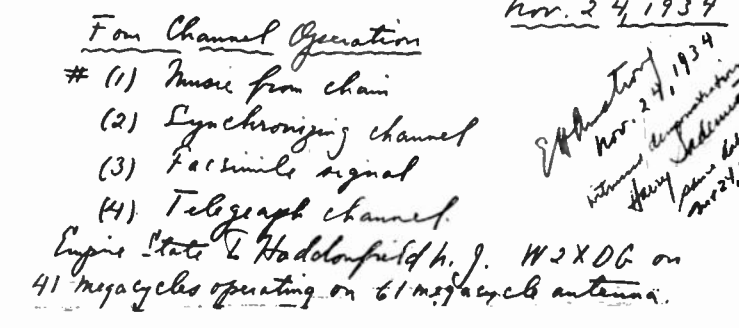 Nov. 24, 1934
Four Channel Operation
# (1) Music from chain
(2) Synchronizing channel
(3) Facsimile signal
(4) Telegraph channel.
Empire State to Haddonfield N. J. W2XDG on
41 megacycles operating on 61 megacycle antenna.
EHArmstrong
Nov. 24, 1934
witnessed demonstration
Harry
same date
Nov 24,